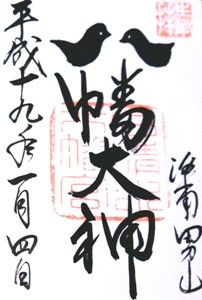 洛南 男山
八幡大神
平成十九年一月四日